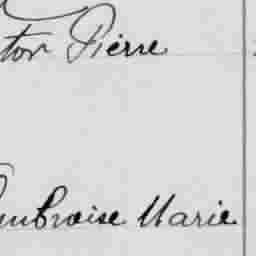 tor Pierre
mbroise Marie